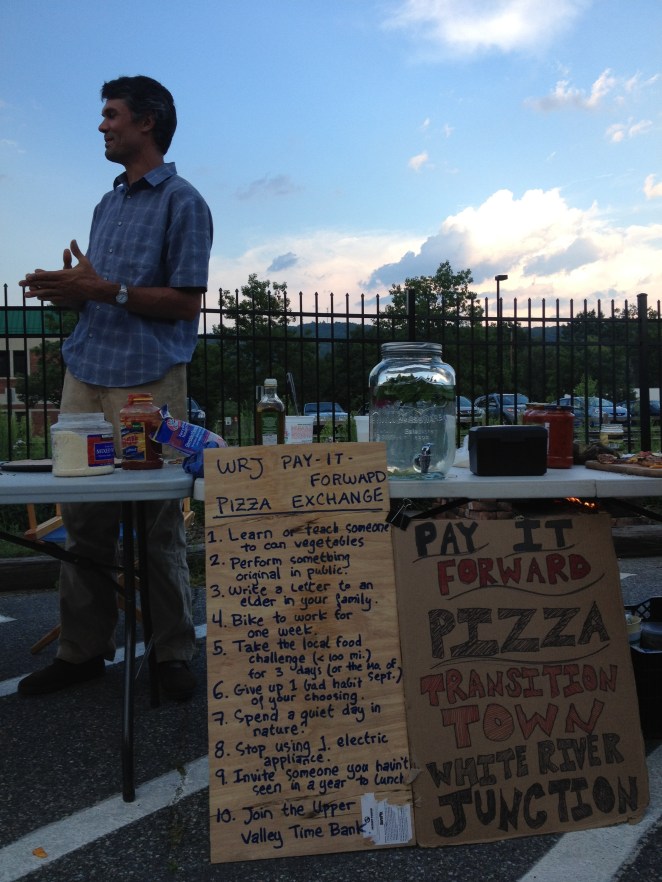 WRJ PAY-IT-
FORWARD
PIZZA EXCHANGE
1. Learn or teach someone
to can vegetables
2. Perform something
original in public.
3. Write a Letter to an
elder in your family.
4. Bike to work for
one week.
5. Take the local food
challenge (<100 mi.)
for 3 days (or the mo. of Sept.)
6. Give up 1 bad habit
of your choosing.
7. Spend a quiet day in
nature.
8. Stop using 1 electric
appliance.
9. Invite someone you havn't
seen in a year to lunch
10. Join the Upper
Valley Time Bank
PAY IT
FORWARD
PIZZA
TRANSITION
TOWN
WHITE RIVER
JUNCTION